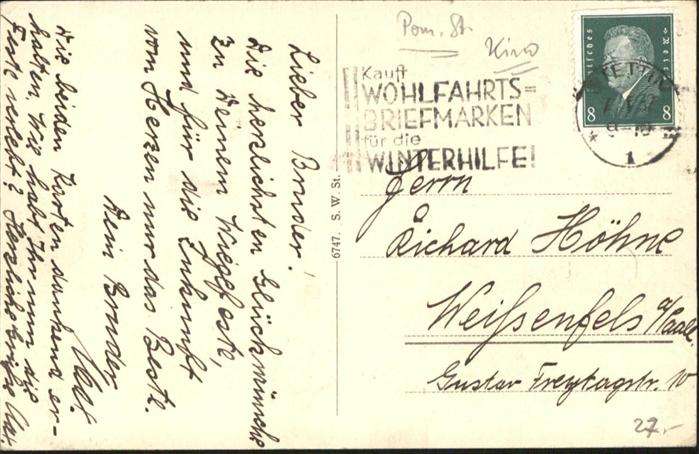 Pom. St.
Kino
Kauft
WOHLFAHRTS=
BRIEFMARKEN
für die
WINTERHILFE!
Deutsches Reich
8 8
STETTIN
1
Herrn
Richard Höhne
Weißenfels a/Saale
Gustav Freytagstr. 10
27.-
6747. S. W. St.
Lieber Bruder!
Die herzlichsten Glückwünsche
zu Deinem Wiegefeste,
und für die Zukunft
von Herzen nur das Beste.
Dein Bruder
Die beiden Karten dankend er-
halten. Wie habt Ihr nun die
Feste verlebt? Herzliche Grüße